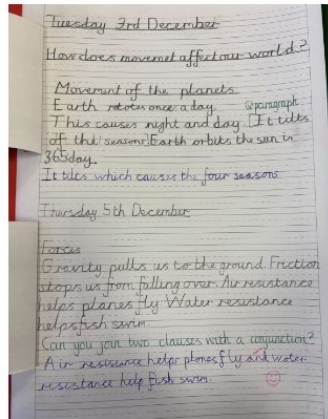 Tuesday 3rd December
How does movemet affect our world?
Movement of the planets
Earth rotates once a day.
@paragraph
This causes night and day. [It tilts
of the seasons. Earth orbits the sun in
365day.
It tilts which causes the four seasons
Thursday 5th December
Forces
Gravity pulls us to the ground. Friction
stops us from falling over. Air resistance
helps planes fly Water resistance
helps fish swim
Can you join two clauses with a conjunction?
Air resistance helps planes fly and water
resistance help fish swim.